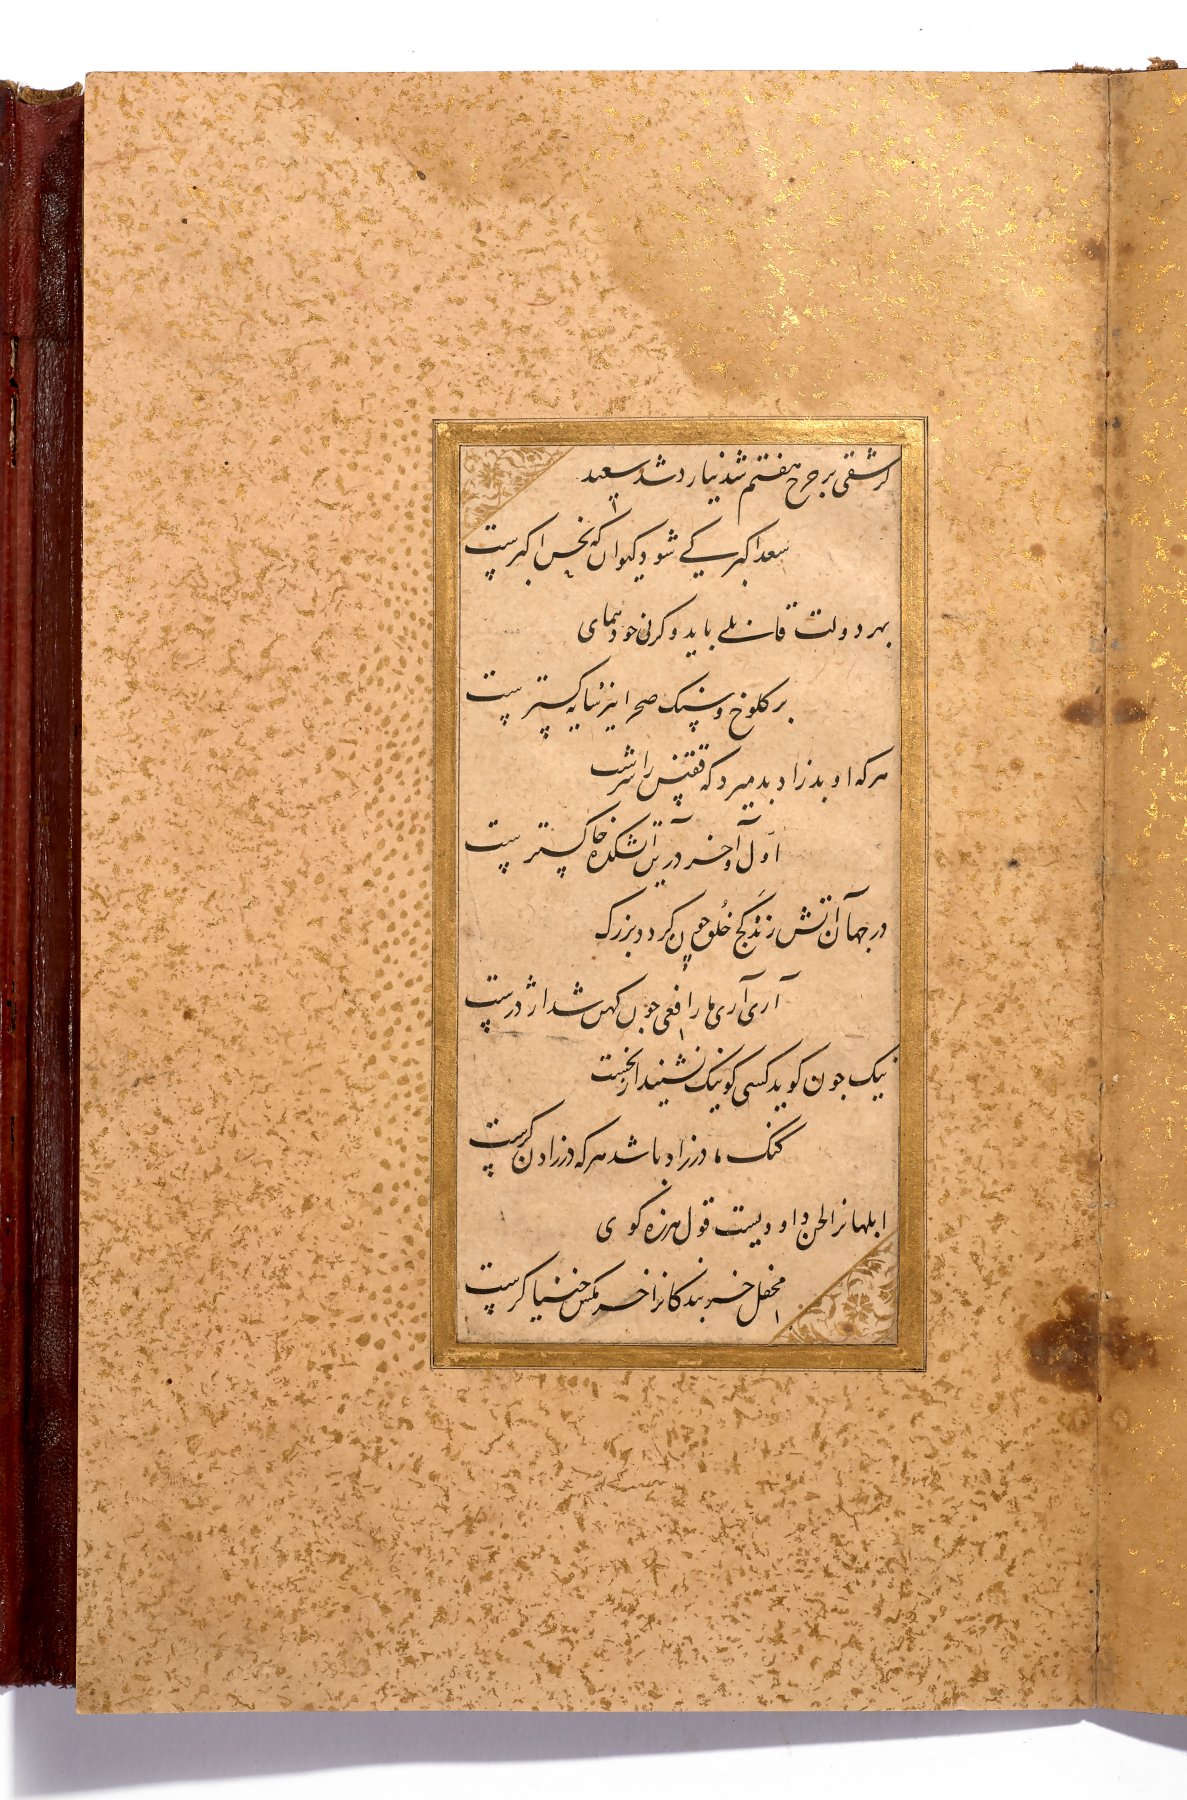 کر شقی بر چرخ هفتم شد نیارد شد سعید
سعد اکبر کے شود کیوان که نحس اکبرست
بهر دولت قابلے باید و کرنی خود همای
بر کلوخ و سنک صحرا نیز سایه کسترست
هر که او بد زاد بد میرد که ققنس را سرشت
اول و آخر در آتشکده خاکسترست
در جهان آتش زند کج خلق چون کردد بزرک
آری آری مار افعی چون کهن شد اژدرست
نیک چون کوید کسی کو نیک نشنید از نخست
کنک مادرزاد باشد هر که مادرزاد کرست
ابلهانرا لحن داودیست قول هرزه کوی
محفل خربندکانرا خرمکس خنیاکرست